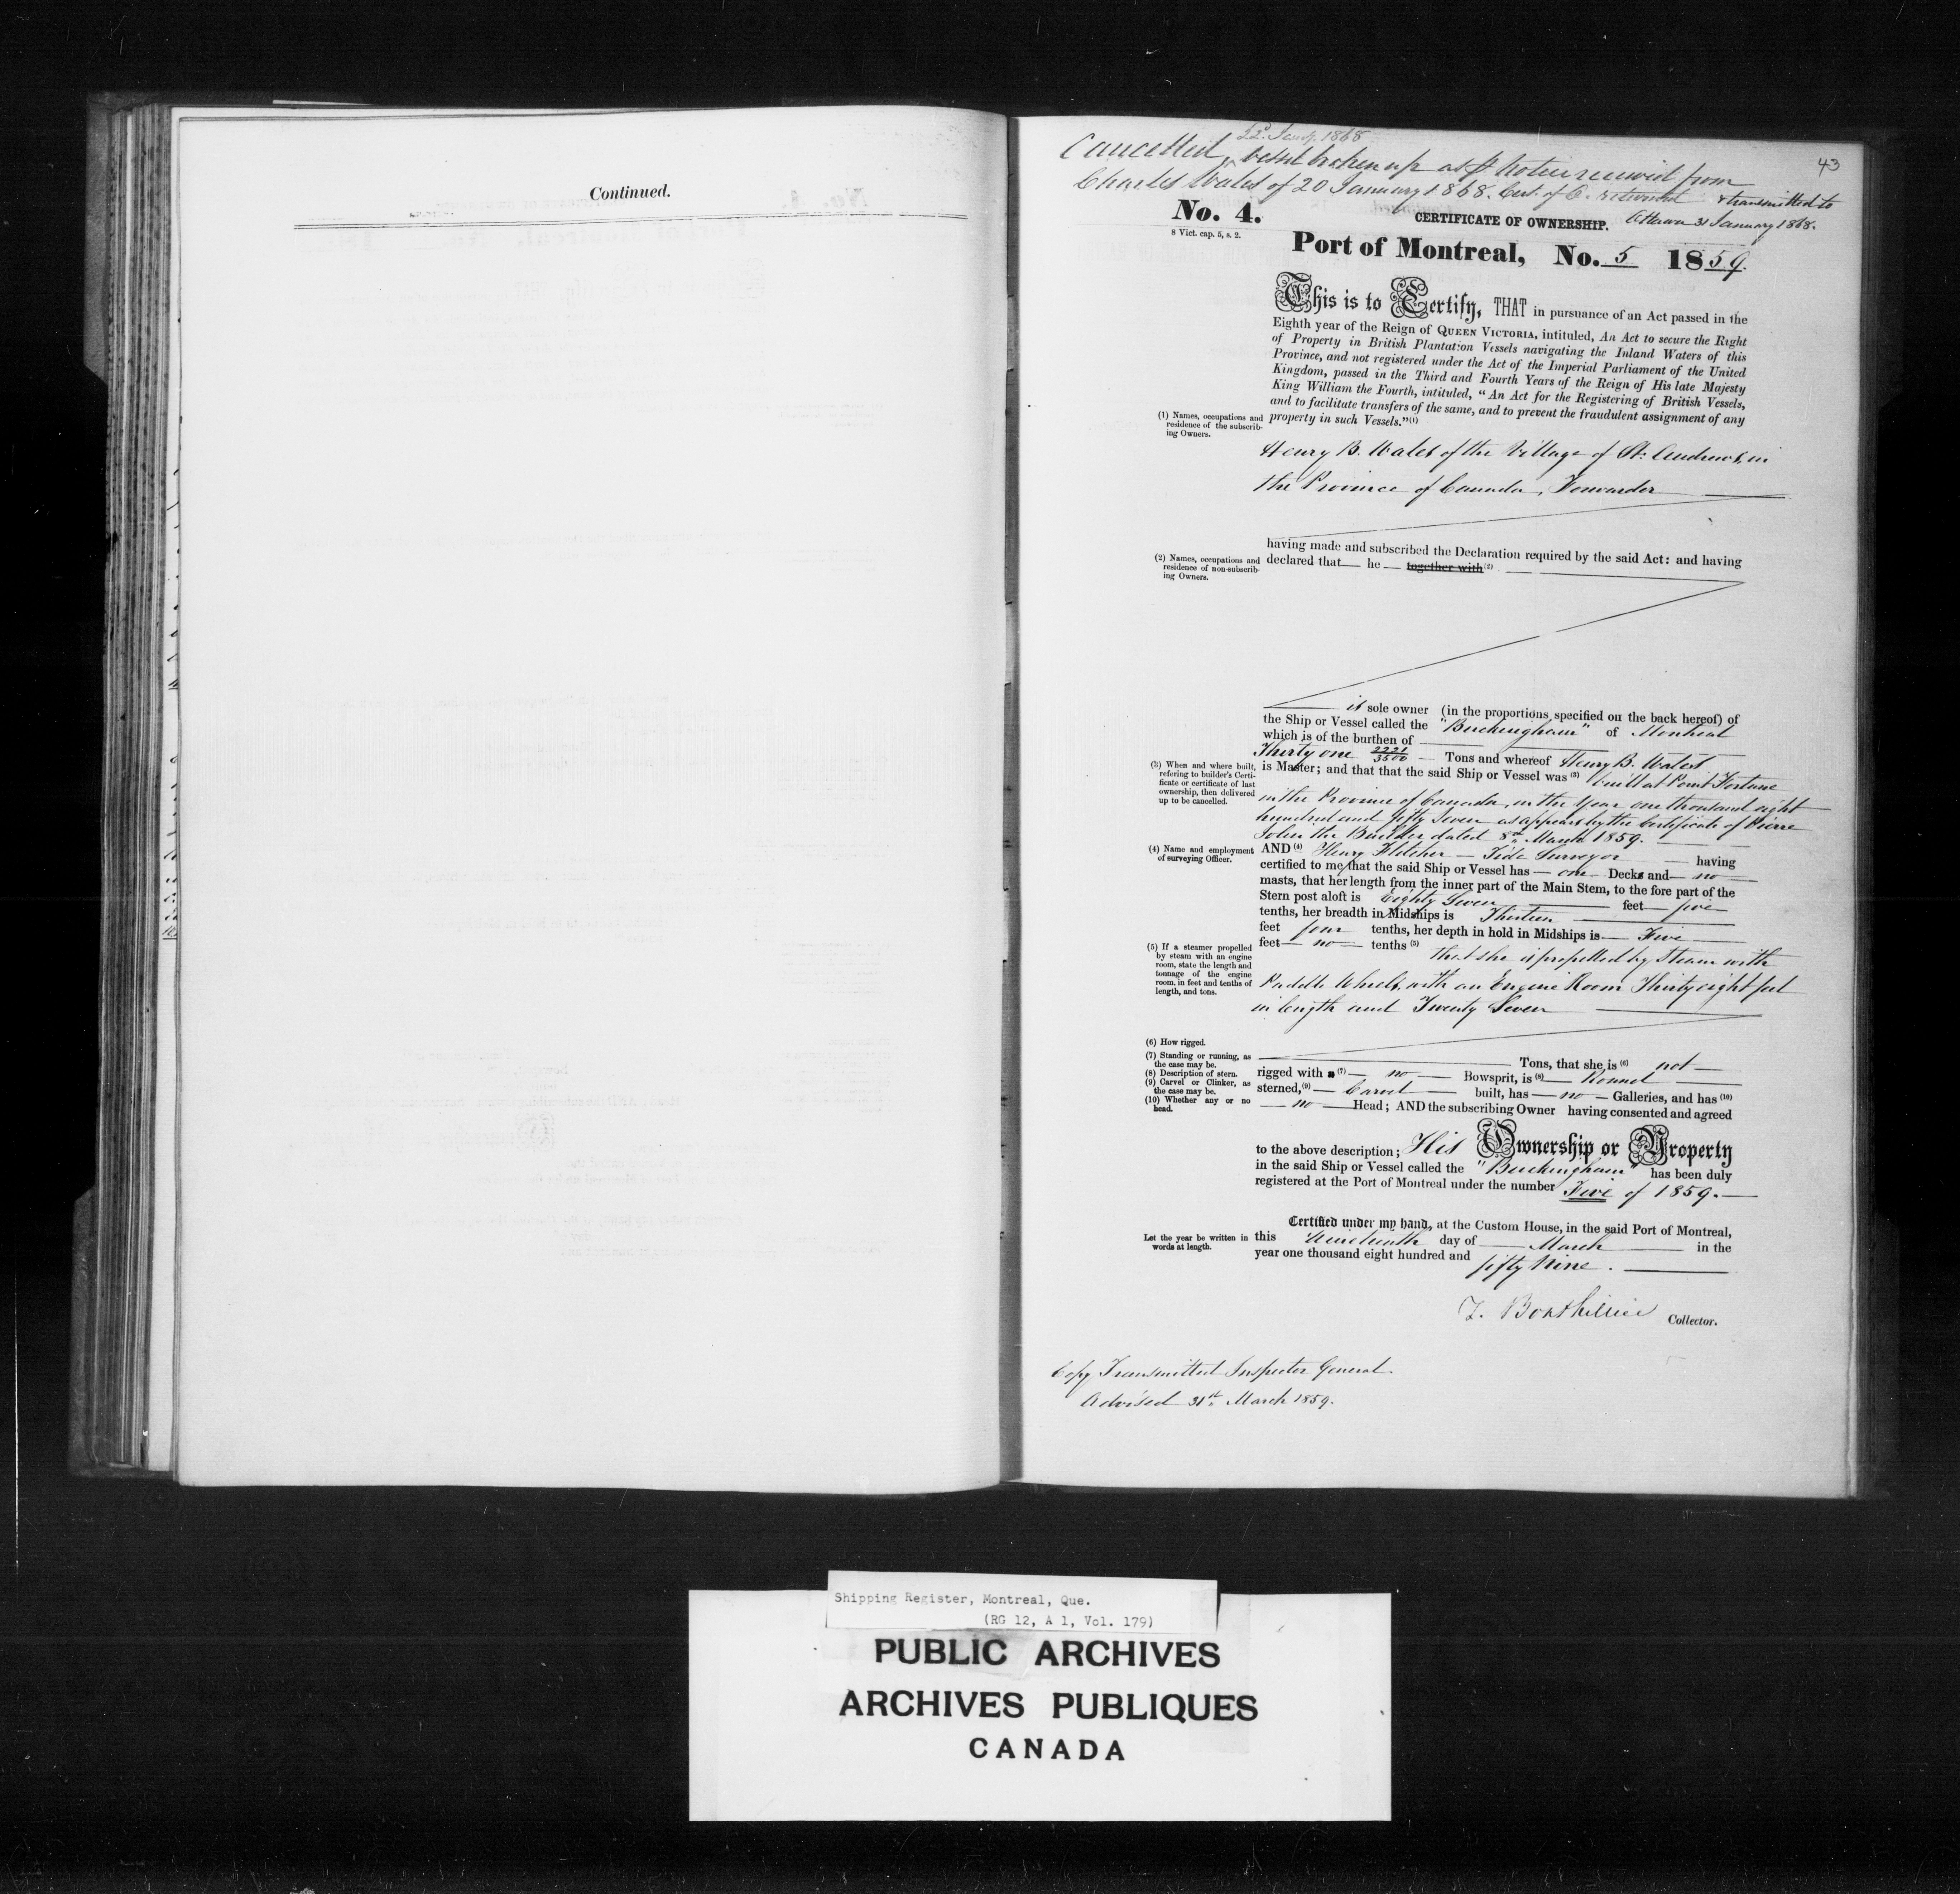 Continued.
22d Jany. 1868
43
Cancelled, vessel broken up as pr Notice received from
Charles Wales of 20 January 1868. Cert. of O. returned & transmitted to
Ottawa 31 January 1868.
No. 4.
8 Vict. cap. 5, s. 2.
CERTIFICATE OF OWNERSHIP.
Port of Montreal, No. 5 1859.
This is to Certify, THAT in pursuance of an Act passed in the
Eighth year of the Reign of QUEEN VICTORIA, intituled, An Act to secure the Right
of Property in British Plantation Vessels navigating the Inland Waters of this
Province, and not registered under the Act of the Imperial Parliament of the United
Kingdom, passed in the Third and Fourth Years of the Reign of His late Majesty
King William the Fourth, intituled, "An Act for the Registering of British Vessels,
and to facilitate transfers of the same, and to prevent the fraudulent assignment of any
property in such Vessels."(1)
(1) Names, occupations and
residence of the subscrib-
ing Owners.
Henry B. Wales of the Village of St. Andrews, in
the Province of Canada, Forwarder
having made and subscribed the Declaration required by the said Act: and having
declared that he together with (2)
(2) Names, occupations and
residence of non-subscrib-
ing Owners.
is sole owner (in the proportions specified on the back hereof) of
the Ship or Vessel called the "Buckingham" of Montreal
which is of the burthen of
Thirty one 2221/3500 Tons and whereof Henry B. Wales
is Master; and that that the said Ship or Vessel was (3) built at Point Fortune
(3) When and where built,
refering to builder's Certi-
ficate or certificate of last
ownership, then delivered
up to be cancelled.
in the Province of Canada, in the Year one thousand eight
hundred and fifty Seven as appears by the Certificate of Pierre
the Builder dated 8th March 1859.
(4) Name and employment
of surveying Officer.
AND (4) Henry Fletcher — Tide Surveyor — having
certified to me that the said Ship or Vessel has — one — Decks and — no —
masts, that her length from the inner part of the Main Stem, to the fore part of the
Stern post aloft is Eighty Seven feet — five —
tenths, her breadth in Midships is Thirteen
feet four tenths, her depth in hold in Midships is — Five
feet — no — tenths (5) that she is propelled by Steam with
(5) If a steamer propelled
by steam with an engine
room, state the length and
tonnage of the engine
room. in feet and tenths of
length, and tons.
Paddle Wheels, with an Engine Room Thirty eight feet
in length and Twenty Seven
(6) How rigged.
(7) Standing or running, as
the case may be.
(8) Description of stern.
(9) Carvel or Clinker, as
the case may be.
(10) Whether any or no
head.
Tons, that she is (6) not —
rigged with a (7) — no — Bowsprit, is (8) — Round
sterned, (9) — Carvel — built, has — no — Galleries, and has (10)
— no — Head; AND the subscribing Owner having consented and agreed
to the above description; His Ownership or Property
in the said Ship or Vessel called the "Buckingham" has been duly
registered at the Port of Montreal under the number Five of 1859.
Certified under my hand, at the Custom House, in the said Port of Montreal,
Let the year be written in
words at length.
this Nineteenth day of — March — in the
year one thousand eight hundred and fifty Nine.
T. Bouthillier Collector.
Copy Transmitted Inspector General
Advised 31st March 1859.
Shipping Register, Montreal, Que.
(RG 12, A 1, Vol. 179)
PUBLIC ARCHIVES
ARCHIVES PUBLIQUES
CANADA